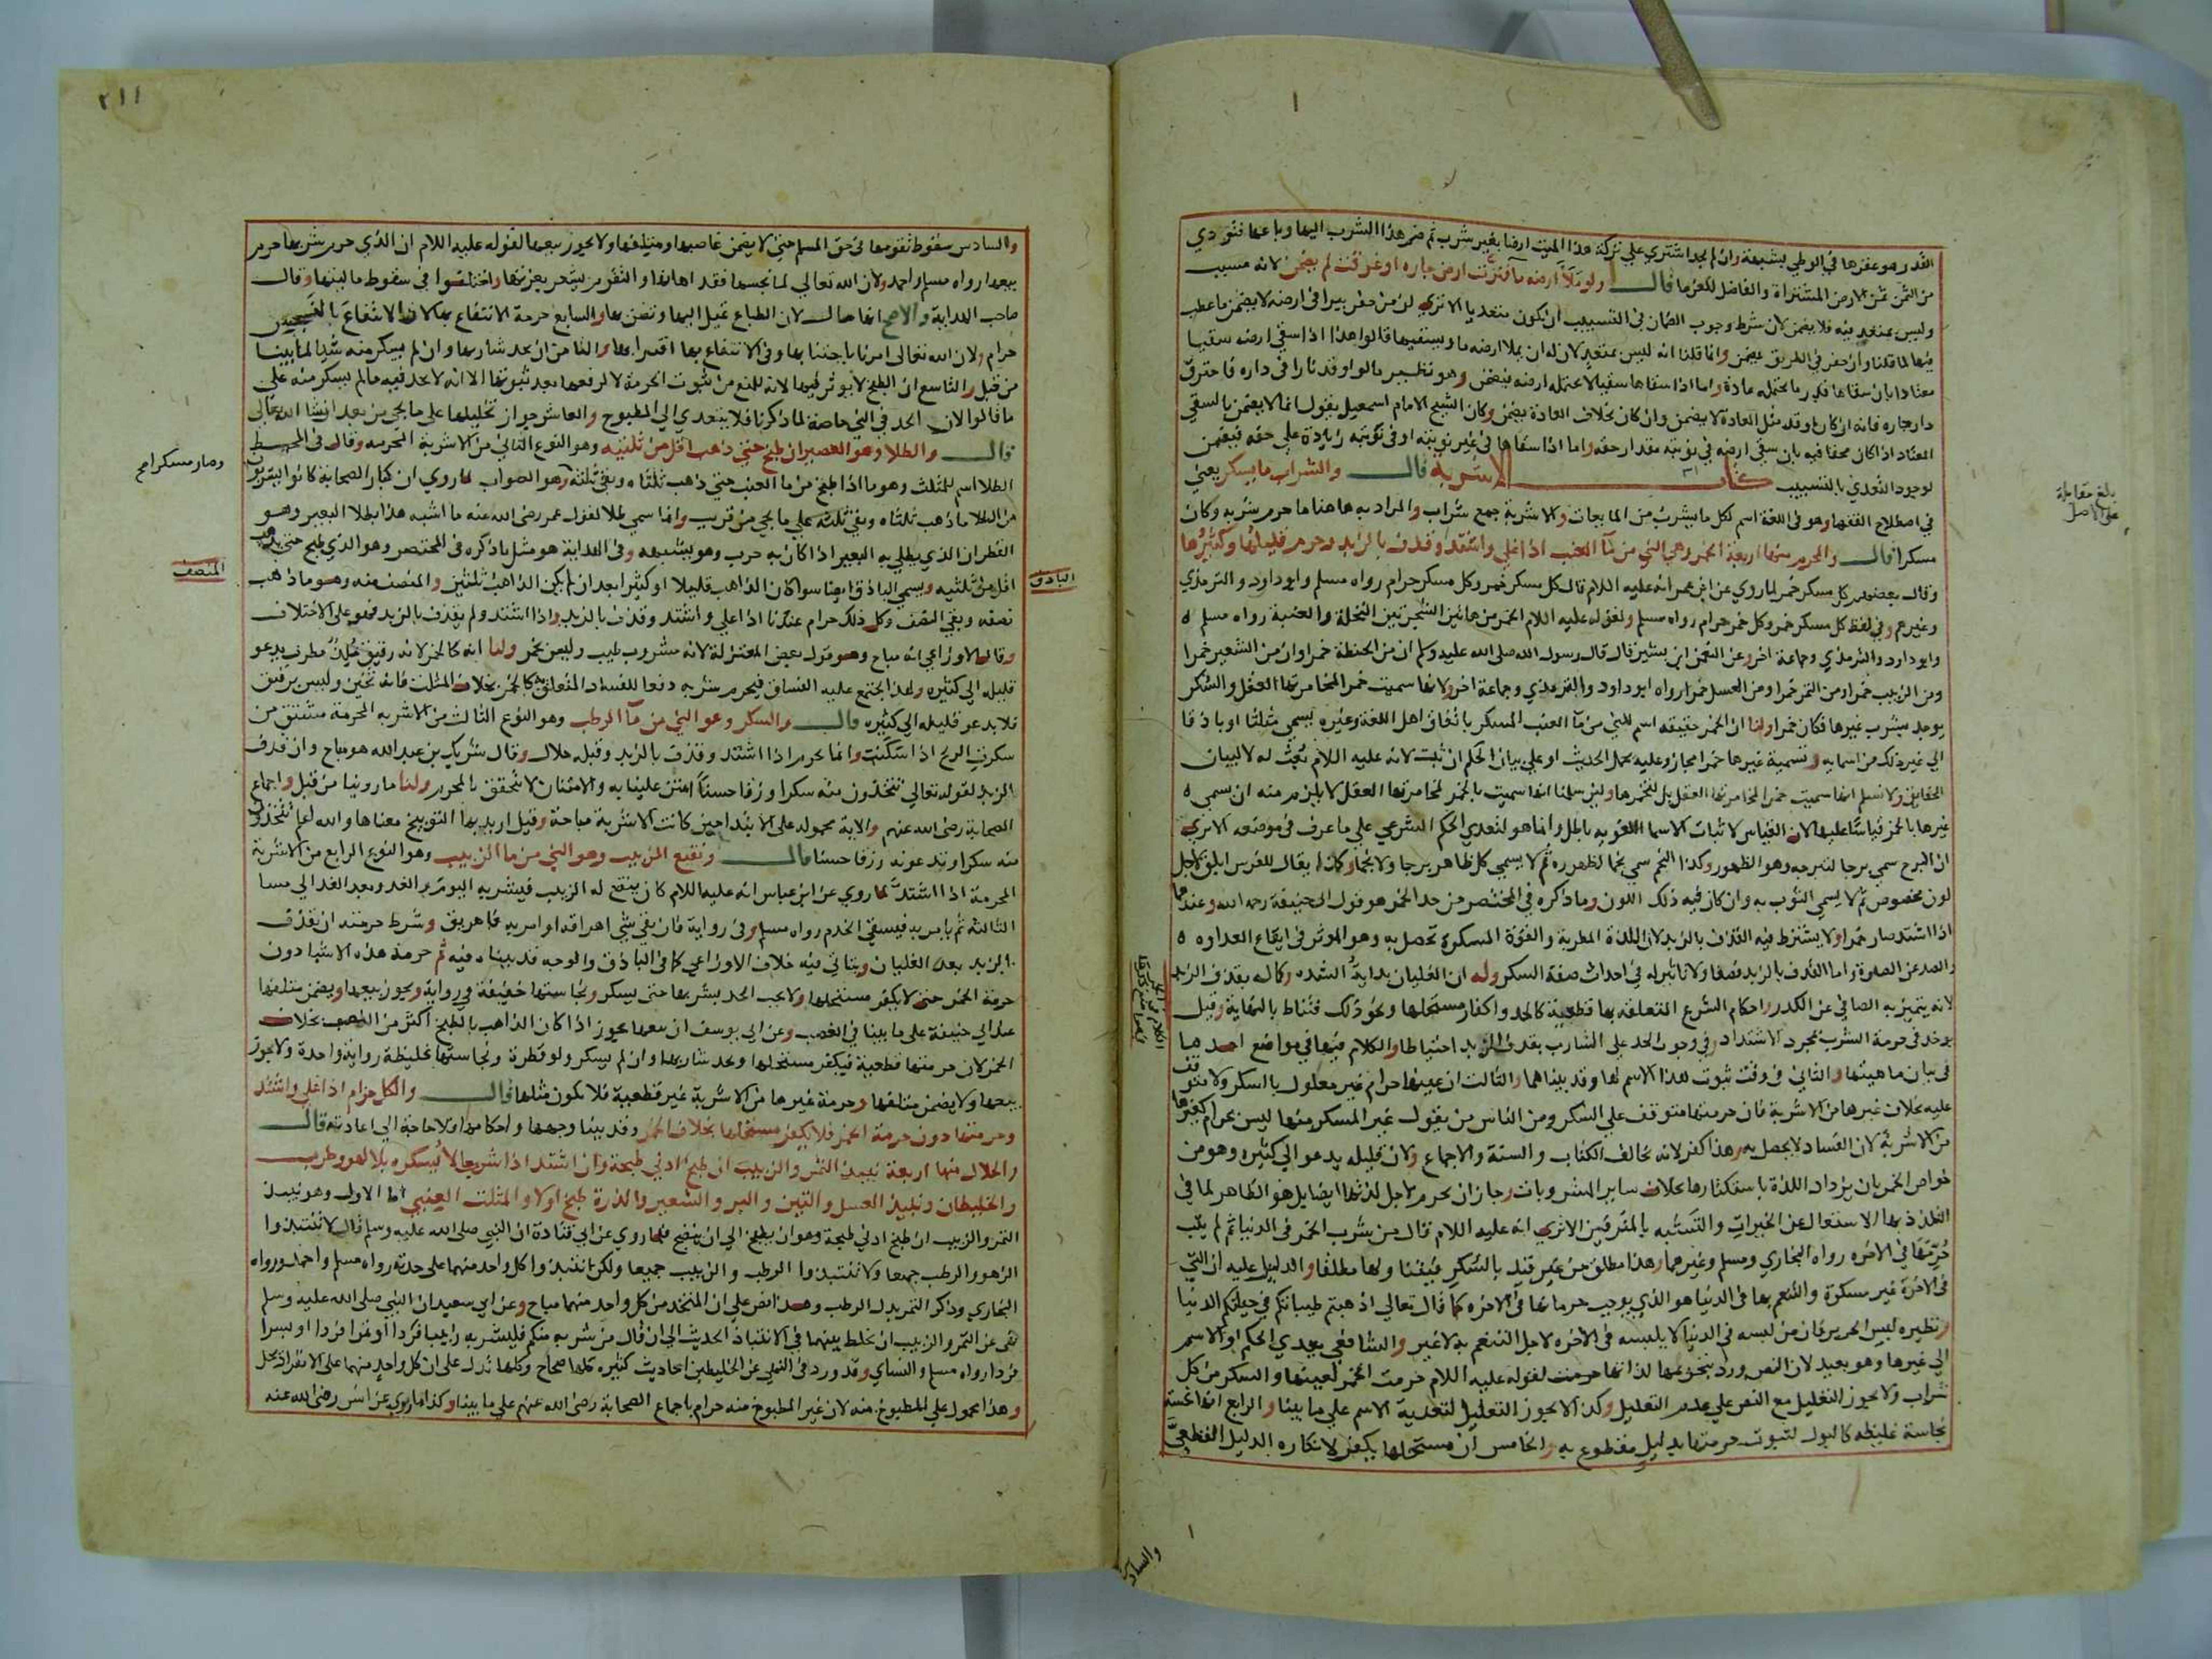 القدر هو عقرها في الوطي بشبهة وان لم يجد اشتري علي تركة هذا الميت ارضا بغير شرب ثم ضم هذا الشرب اليها وباعها فيؤدي
من الثمن ثمن الارض المشتراة والفاضل للغرما قال ولو ملأ ارضه مآ فنزت ارض جاره او غرقت لم يضمن لانه مسبب
وليس بمتعد فيه فلا يضمن لان شرط وجوب الضمان في التسبيب ان يكون متعديا الا تري ان من حفر بيرا في ارضه لا يضمن ما عطب
فيها لما قلنا وان حفر في الطريق يضمن وانما قلنا انه ليس بمتعد لان له ان يملا ارضه ما ويسقيها قالوا هذا اذا سقي ارضه سقيا
معتادا بان سقاها قدر ما يحتمله عادة واما اذا سقاها سقيا لا يحتمله ارضه فيضمن وهو نظير ما لو اوقد نارا في داره فاحترق
دار جاره فانه ان كان اوقد مثل العادة لا يضمن وان كان بخلاف العادة يضمن وكان الشيخ الامام اسمعيل يقول انما لا يضمن بالسقي
المعتاد اذا كان محقا فيه بان سقي ارضه في نوبته مقدار حقه واما اذا سقاها في غير نوبته او في نوبته زيادة علي حقه فيضمن
لوجود التعدي بالتسبيب كتاب الاشربة قال والشراب ما يسكر يعني
في اصطلاح الفقها وهو في اللغة اسم لكل ما يشرب من المايعات والاشربة جمع شراب والمراد به هاهنا ما حرم شربه وكان
مسكرا قال والمحرم منها اربعة الخمر وهي الني من مآ العنب اذا غلي واشتد وقذف بالزبد وحرم قليلها وكثيرها
وقال بعضهم كل مسكر خمر لما روي عن ابن عمر انه عليه اللام قال كل مسكر خمر وكل مسكر حرام رواه مسلم وابو داود والترمذي
وغيرهم وفي لفظ كل مسكر خمر وكل خمر حرام رواه مسلم ولقوله عليه اللام الخمر من هاتين الشجرتين النخلة والعنبة رواه مسلم
وابو داود والترمذي وجماعة اخر وعن النعمن ابن بشير قال قال رسول الله صلى الله عليه وسلم ان من الحنطة خمرا وان من الشعير خمرا
ومن الزبيب خمرا ومن التمر خمرا ومن العسل خمرا رواه ابو داود والترمذي وجماعة اخر ولانها سميت خمرا لمخامرتها العقل والسكر
يوجد بشرب غيرها فكان خمرا ولنا ان الخمر حقيقة اسم للني من مآ العنب المسكر باتفاق اهل اللغة وغيره يسمي مثلثا او باذقا
الي غير ذلك من اسمايه وتسمية غيرها خمرا مجاز وعليه يحمل الحديث او علي بيان الحكم ان ثبت لانه عليه اللام بعث له لا لبيان
الحقايق ولا نسلم انها سميت خمرا لمخامرتها العقل بل لتخمرها ولين سلمنا انها سميت بالخمر لمخامرتها العقل لا يلزم منه ان يسمي
غيرها بالخمر قياسا عليها لان القياس لاثبات الاسما اللغوية باطل وانما هو لتعدي الحكم الشرعي علي ما عرف في موضعه الا تري
ان البرج سمي برجا لتبرجه وهو الظهور وكذا النجم سمي نجما لظهوره ثم لا يسمي كل ظاهر برجا ولا نجما وكذا يقال للفرس ابلق لاجل
لون مخصوص ثم لا يسمي الثوب به وان كان فيه ذلك اللون وما ذكره في المختصر من حد الخمر هو قول ابي حنيفة رحمه الله وعندهما
اذا اشتد صار خمرا ولا يشترط فيه القذف بالزبد لان اللذة المطربة والقوة المسكرة تحصل به وهو الموثر في ايقاع العداوة
والصد عن الصلوة واما القذف بالزبد فصفا ولا تاثير له في احداث صفة السكر وله ان الغليان بداية الشدة وكماله بقذف الزبد
لانه يتميز به الصافي عن الكدر واحكام الشرع المتعلقة بها قطعية كالحد واكفار مستحلها ونحو ذلك فتناط بالنهاية وقيل
يوخذ في حرمة الشرب بمجرد الاشتداد وفي وجوب الحد علي الشارب بقذف الزبد احتياطا والكلام فيها في مواضع احدها
في بيان ماهيتها والثاني في وقت ثبوت هذا الاسم لها وقد بيناهما والثالث ان عينها حرام غير معلول بالسكر ولا متوقف
عليه بخلاف غيرها من الاشربة فان حرمتها متوقف علي السكر ومن الناس من يقول غير المسكر منها ليس بحرام كغيرها
من الاشربة لان الفساد لا يحصل به وهذا كفر لانه مخالف الكتاب والسنة والاجماع ولان قليله يدعو الي كثيره وهو من
خواص الخمر بان يزداد اللذة باستكثارها بخلاف ساير المشروبات وجاز ان يحرم لاجل لذتها ايضا بل هو الظاهر لما في
التلذذ بها الاشتغال عن الخيرات والتشبه بالمترفين الا تري انه عليه اللام قال من شرب الخمر في الدنيا ثم لم يتب
حرمها في الاخره رواه البخاري ومسلم وغيرهما وهذا مطلق من غير قيد بالسكر فيفتنا ولها مطلقا والدليل عليه ان التي
في الاخرة غير مسكرة والتنعم بها في الدنيا هو الذي يوجب حرمانها في الاخره كما قال تعالي اذهبتم طيباتكم في حياتكم الدنيا
ونظيره لبس الحرير فان من لبسه في الدنيا لا يلبسه في الاخره لاجل التنعم به لا غير والشافعي يعدي الحكم او الاسم
الي غيرها وهو بعيد لان النص ورد بتحريمها لذاتها حرمت لقوله عليه اللام حرمت الخمر لعينها والسكر من كل
شراب ولا يجوز التعليل مع النص علي عدم التعليل وكذا لا يجوز التعليل لتعدية الاسم علي ما بينا والرابع انها نجسة
نجاسة غليظه كالبول لثبوت حرمتها بدليل مقطوع به والخامس ان مستحلها يكفر لانكاره الدليل القطعي
بلغ مقابلة
علي الاصل
والسادس
٢١١
والسادس سقوط تقومها في حق المسلم حتي لا يضمن غاصبها ومتلفها ولا يجوز بيعها لقوله عليه اللام ان الذي حرم شربها حرم
بيعها رواه مسلم واحمد ولان الله تعالي لما نجسها فقد اهانها والتقوم يشعر بعزتها واختلفوا في سقوط ماليتها وقال
صاحب الهداية والاصح انها مال لان الطباع تميل اليها وتضن بها والسابع حرمة الانتفاع بها لان الانتفاع بالنجس
حرام ولان الله تعالي امرنا باجتنابها وفي الانتفاع بها اقترابها والثامن ان يحد شاربها وان لم يسكر منه شيا لما بينا
من قبل والتاسع ان الطبخ لا يوثر فيها لانه للمنع من ثبوت الحرمة لا لرفعها بعد ثبوتها الا انه لا يحد فيه ما لم يسكر منه علي
ما قالوا لان الحد في الني خاصة لما ذكرنا فلا يتعدي الي المطبوخ والعاشر جواز تخليلها علي ما يجي من بعد ان شا الله تعالي
قال والطلا وهو العصير ان طبخ حتي ذهب اقل من ثلثيه وهو النوع الثاني من الاشربة المحرمه وقال في المحيط
الطلا اسم للمثلث وهو ما اذا طبخ من ما العنب حتي ذهب ثلثاه وبقي ثلثه وهو الصواب لما روي ان كبار الصحابة كانوا يشربون
من الطلا ما ذهب ثلثاه وبقي ثلثه علي ما يجي من قريب وانما سمي طلا لقول عمر رضي الله عنه ما اشبه هذا بطلا البعير وهو
القطران الذي يطلي به البعير اذا كان به جرب وهو يشبهه وفي الهداية هو مثل ما ذكره في المختصر وهو الذي طبخ حتي يذهب
اقل من ثلثيه ويسمي الباذق ايضا سوا كان الذاهب قليلا او كثيرا بعد ان لم يكن الذاهب ثلثين والمنصف منه وهو ما ذهب
نصفه وبقي النصف وكل ذلك حرام عندنا اذا غلي واشتد وقذف بالزبد واذا اشتد ولم يقذف بالزبد فهو علي الاختلاف
وقال الاوزاعي انه مباح وهو قول بعض المعتزلة لانه مشروب طيب وليس بخمر ولنا انه كالخمر لانه رقيق ملذ مطرب يدعو
قليله الي كثيره ولهذا يجتمع عليه الفساق فيحرم شربه دفعا للفساد المتعلق كالخمر بخلاف المثلث فانه ثخين وليس برقيق
فلا يدعو قليله الي كثيره قال والسكر وهو الني من مآ الرطب وهو النوع الثالث من الاشربه المحرمة مشتق من
سكرت الريح اذا سكنت وانما يحرم اذا اشتد وقذف بالزبد وقبله حلال وقال شريك بن عبد الله هو مباح وان قذف
الزبد لقوله تعالي تتخذون منه سكرا ورزقا حسنا امتن علينا به والامتنان لا يتحقق بالمحرم ولنا ما روينا من قبل واجماع
الصحابة رضي الله عنهم والاية محمولة علي الابتدا حين كانت الاشربة مباحة وقيل اريد بها التوبيخ معناها والله اعلم تتخذون
منه سكرا وتدعونه رزقا حسنا قال ونقيع الزبيب وهو الني من ما الزبيب وهو النوع الرابع من الاشربة
المحرمة اذا اشتد لما روي عن ابن عباس انه عليه اللام كان ينقع له الزبيب فيشربه اليوم والغد وبعد الغد الي مسا
الثالثه ثم يامر به فيسقي الخدم رواه مسلم وفي رواية فان بقي شي اهراقه او امر به فاهريق وشرط حرمته ان يقذف
بالزبد بعد الغليان وياتي فيه خلاف الاوزاعي كما في الباذق والوجه قد بيناه فيه ثم حرمة هذه الاشيا دون
حرمة الخمر حتي لا يكفر مستحلها ولا يجب الحد بشربها حتي يسكر ونجاستها خفيفة في رواية ويجوز بيعها ويضمن متلفها
عند ابي حنيفة علي ما بينا في الغصب وعن ابي يوسف ان بيعها يجوز اذا كان الذاهب بالطبخ اكثر من النصف بخلاف
الخمر لان حرمتها قطعية فيكفر مستحلها ويحد شاربها وان لم يسكر ولو قطرة ونجاستها غليظة رواية واحدة ولا يجوز
بيعها ولا يضمن متلفها وحرمة غيرها من الاشربة غير قطعية فلا يكون مثلها قال والكل حرام اذا غلي واشتد
وحرمتها دون حرمة الخمر فلا يكفر مستحلها بخلاف الخمر وقد بينا وجهها واحكامها ولا حاجة الي اعادته قال
والحلال منها اربعة نبيذ التمر والزبيب ان طبخ ادني طبخة وان اشتد اذا شرب ما لا يسكره بلا لهو وطرب
والخليطان ونبيذ العسل والتين والبر والشعير والذرة طبخ اولا والمثلث العنبي اما الاول وهو نبيذ
التمر والزبيب ان طبخ ادني طبخة وهو ان يطبخ الي ان ينضج فلما روي عن ابي قتادة ان النبي صلى الله عليه وسلم قال لا تنتبذوا
الزهو والرطب جمعا ولا تنتبذوا الرطب والزبيب جميعا ولكن انتبذوا كل واحد منهما على حدته رواه مسلم واحمد ورواه
البخاري وذكر التمر بدل الرطب وهذا نص علي ان المتخذ من كل واحد منهما مباح وعن ابي سعيد ان النبي صلى الله عليه وسلم
نهي عن التمر والزبيب ان يخلط بينهما في الانتباذ الحديث الي ان قال من شربه منكم فليشربه زبيبا فردا او تمرا فردا او بسرا
فردا رواه مسلم والنساي وقد ورد في النهي عن الخليطين احاديث كثيره كلها صحاح وكلها تدل علي ان كل واحد منهما علي الانفراد يحل
وهذا محمول علي المطبوخ منه لان غير المطبوخ منه حرام باجماع الصحابة رضي الله عنهم علي ما بينا وكذا ما روي عن انس رضي الله عنه
وصار مسكرا صح
المنصف
الباذق